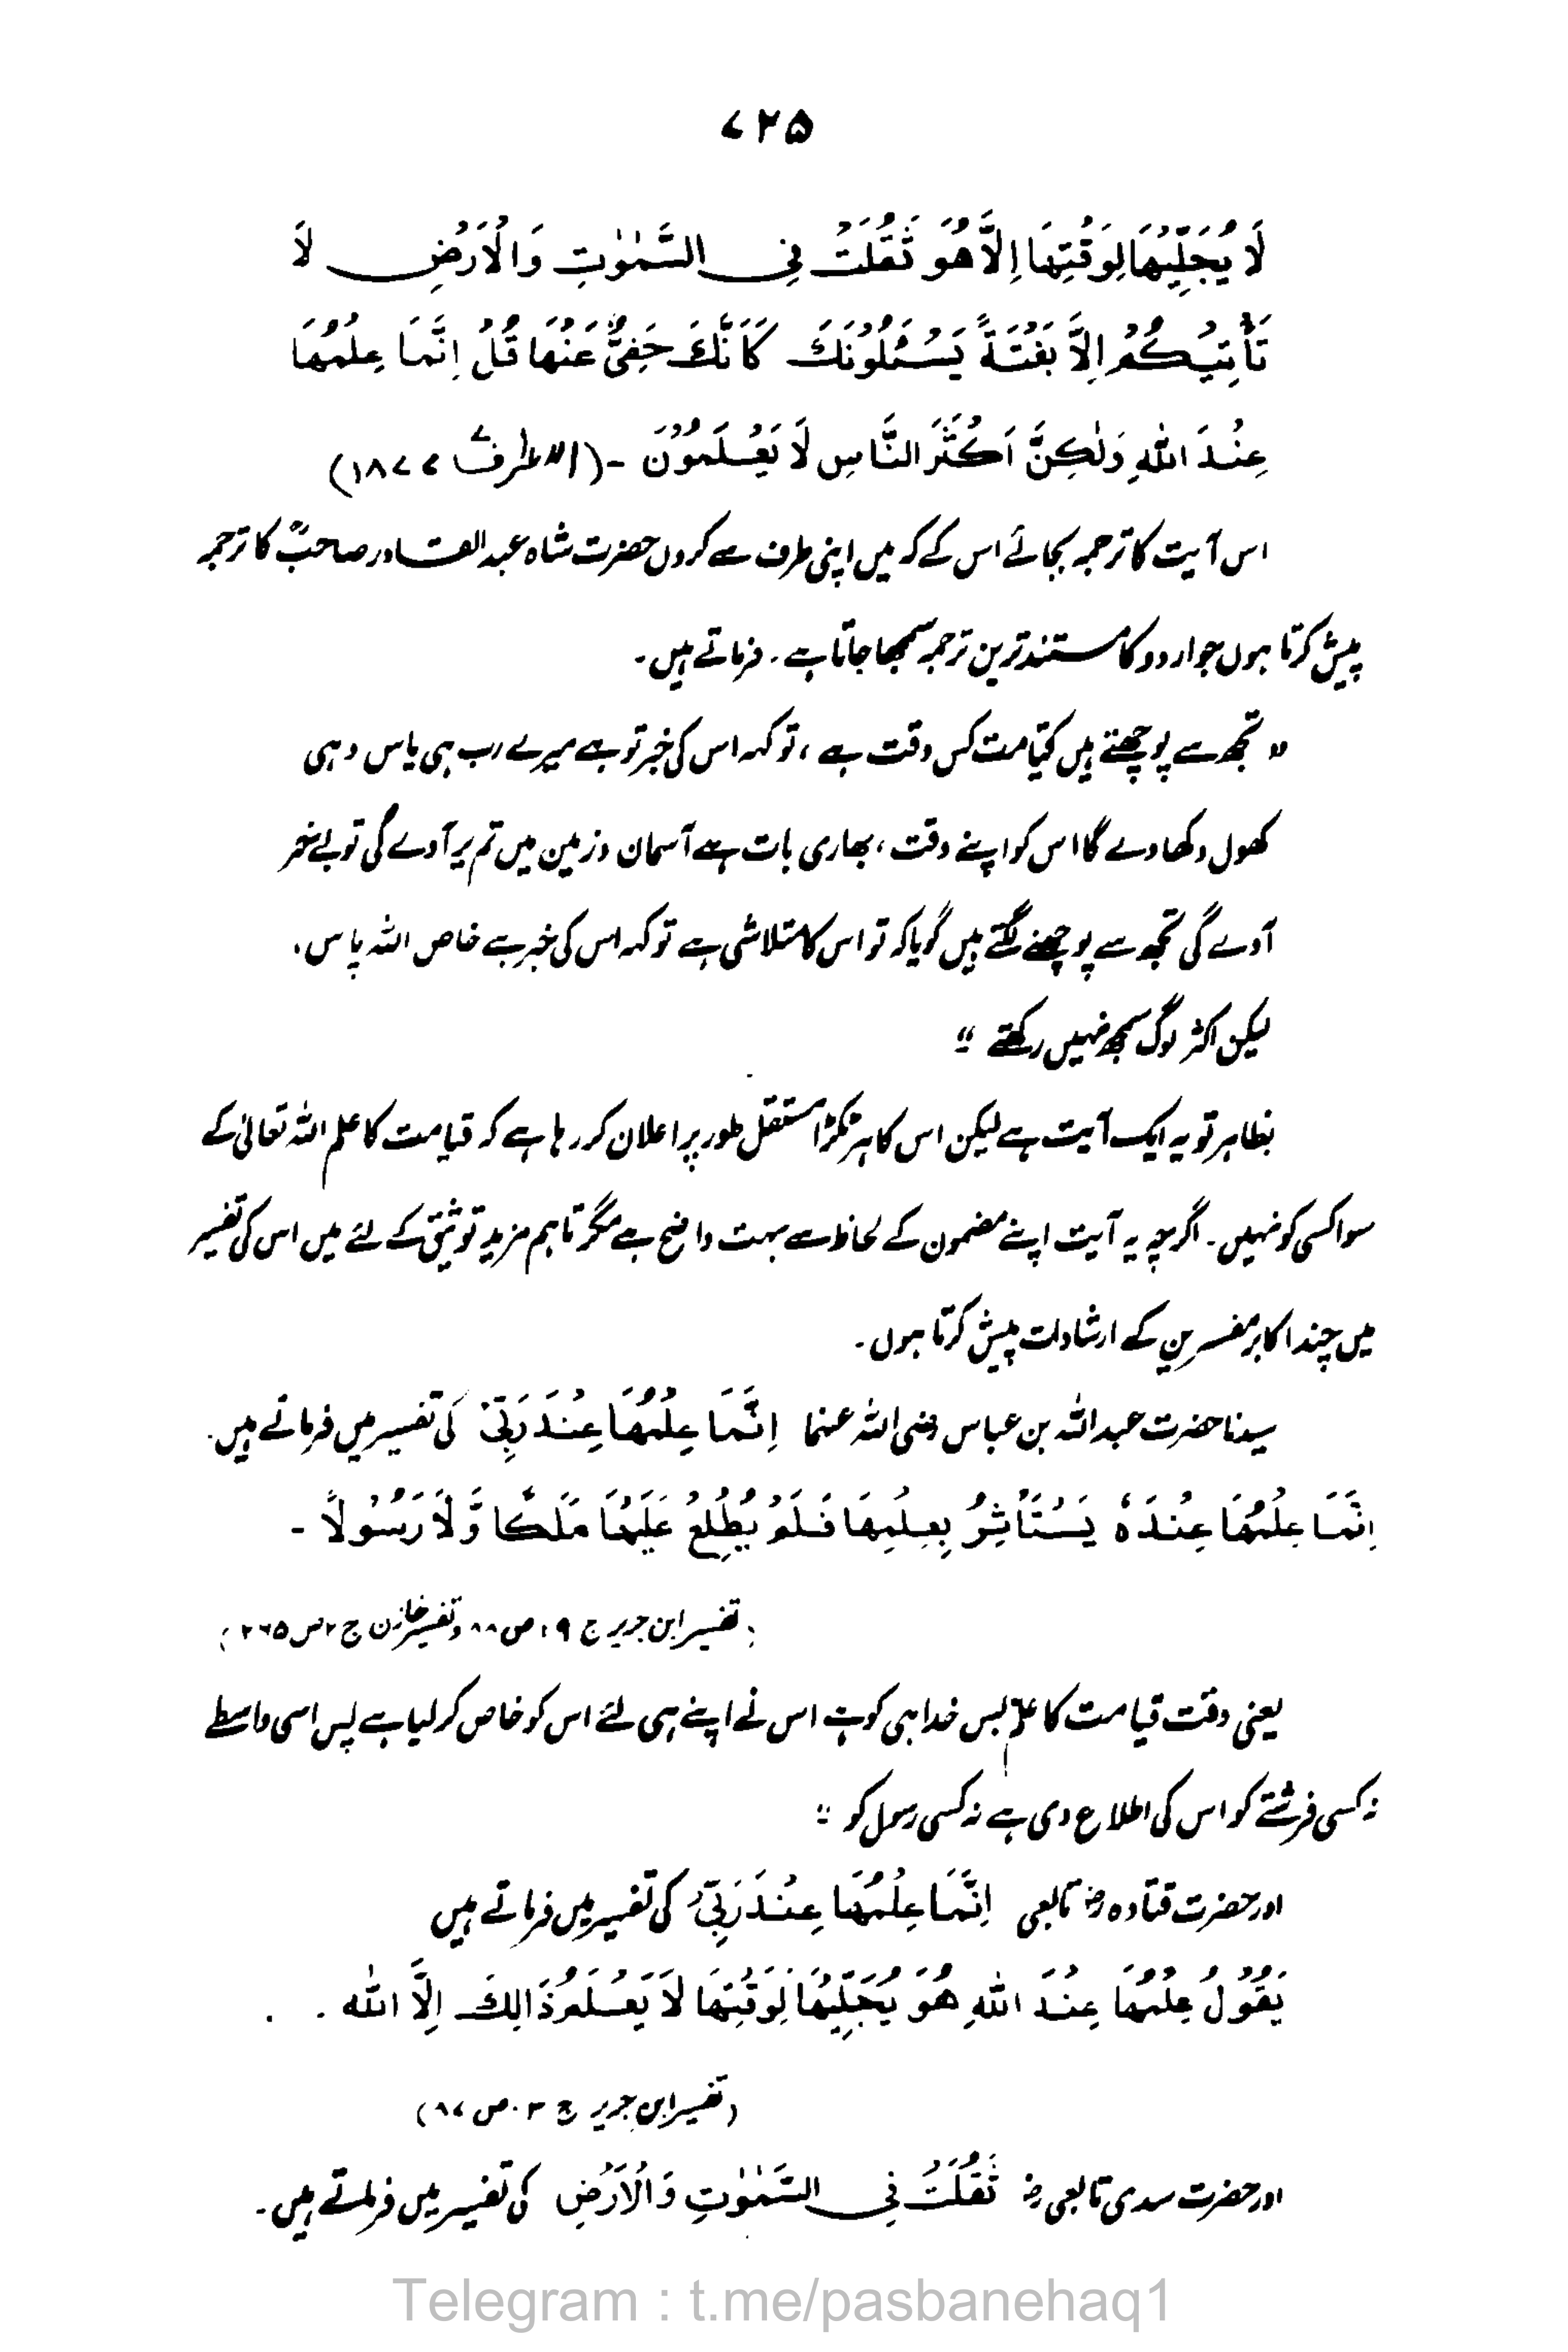 ۷۲۵
لَا يُجَلِّيْهَا لِوَقْتِهَا اِلَّا هُوَ ثَقُلَتْ فِی السَّمٰوٰتِ وَالْاَرْضِ لَا
تَأْتِيْكُمْ اِلَّا بَغْتَةً يَسْئَلُوْنَكَ كَاَنَّكَ حَفِیٌّ عَنْهَا قُلْ اِنَّمَا عِلْمُهَا
عِنْدَ اللهِ وَلٰكِنَّ اَكْثَرَ النَّاسِ لَا يَعْلَمُوْنَ -
اس آیت کا ترجمہ بجائے اس کے کہ میں اپنی طرف سے کردوں حضرت شاہ عبدالقادر صاحبؒ کا ترجمہ
پیش کرتا ہوں جو اردو کا مستند ترین ترجمہ سمجھا جاتا ہے ۔ فرماتے ہیں ۔
" تجھ سے پوچھتے ہیں کہ قیامت کس وقت ہے ، تو کہہ اس کی خبر تو ہے میرے رب ہی پاس وہی
کھول دکھا دے گا اس کو اپنے وقت ، بھاری بات ہے آسمان و زمین میں تم پر آوے گی تو بے خبر
آوے گی تجھ سے پوچھنے لگتے ہیں گویا کہ تو اس کا متلاشی ہے تو کہہ اس کی خبر ہے خاص اللہ پاس ،
لیکن اکثر لوگ سمجھ نہیں رکھتے "
بظاہر تو یہ ایک آیت ہے لیکن اس کا ہر ٹکڑا مستقل طور پر اعلان کر رہا ہے کہ قیامت کا علم اللہ تعالیٰ کے
سوا کسی کو نہیں ۔ اگرچہ یہ آیت اپنے مضمون کے لحاظ سے بہت واضح ہے مگر تاہم مزید توثیق کے لئے میں اس کی تفسیر
میں چند اکابر مفسرین کے ارشادات پیش کرتا ہوں ۔
سیدنا حضرت عبداللہ بن عباس رضی اللہ عنہما اِنَّمَا عِلْمُهَا عِنْدَ رَبِّیْ کی تفسیر میں فرماتے ہیں ۔
اِنَّمَا عِلْمُهَا عِنْدَهٗ يَسْتَأْثِرُ بِعِلْمِهَا فَلَمْ يُطْلِعْ عَلَيْهَا مَلَكًا وَّلَا رَسُوْلًا -
(تفسیر ابن جریر ج ۹، ص ۸۸ و تفسیر خازن ج ۲ ص ۲۶۵)
یعنی وقت قیامت کا علم بس خدا ہی کو ہے اس نے اپنے ہی لئے اس کو خاص کر لیا ہے پس اسی واسطے
نہ کسی فرشتے کو اس کی اطلاع دی ہے نہ کسی رسول کو "
اور حضرت قتادہ رض تابعی اِنَّمَا عِلْمُهَا عِنْدَ رَبِّیْ کی تفسیر میں فرماتے ہیں
يَقُوْلُ عِلْمُهَا عِنْدَ اللهِ هُوَ يُجَلِّيْهَا لِوَقْتِهَا لَا يَعْلَمُ ذَالِكَ اِلَّا الله ۔
(تفسیر ابن جریر ج ص ۸۷)
اور حضرت سدی تابعی رض ثَقُلَتْ فِی السَّمٰوٰتِ وَالْاَرْضِ کی تفسیر میں فرماتے ہیں ۔
Telegram : t.me/pasbanehaq1